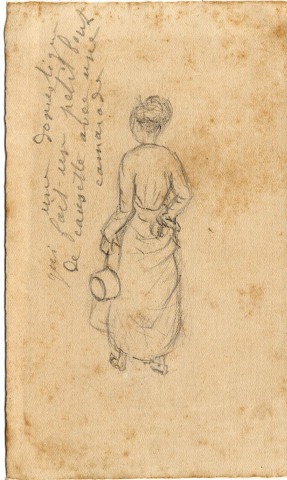 un domestique
qui fait un petit bout
de causette avec une
camarade